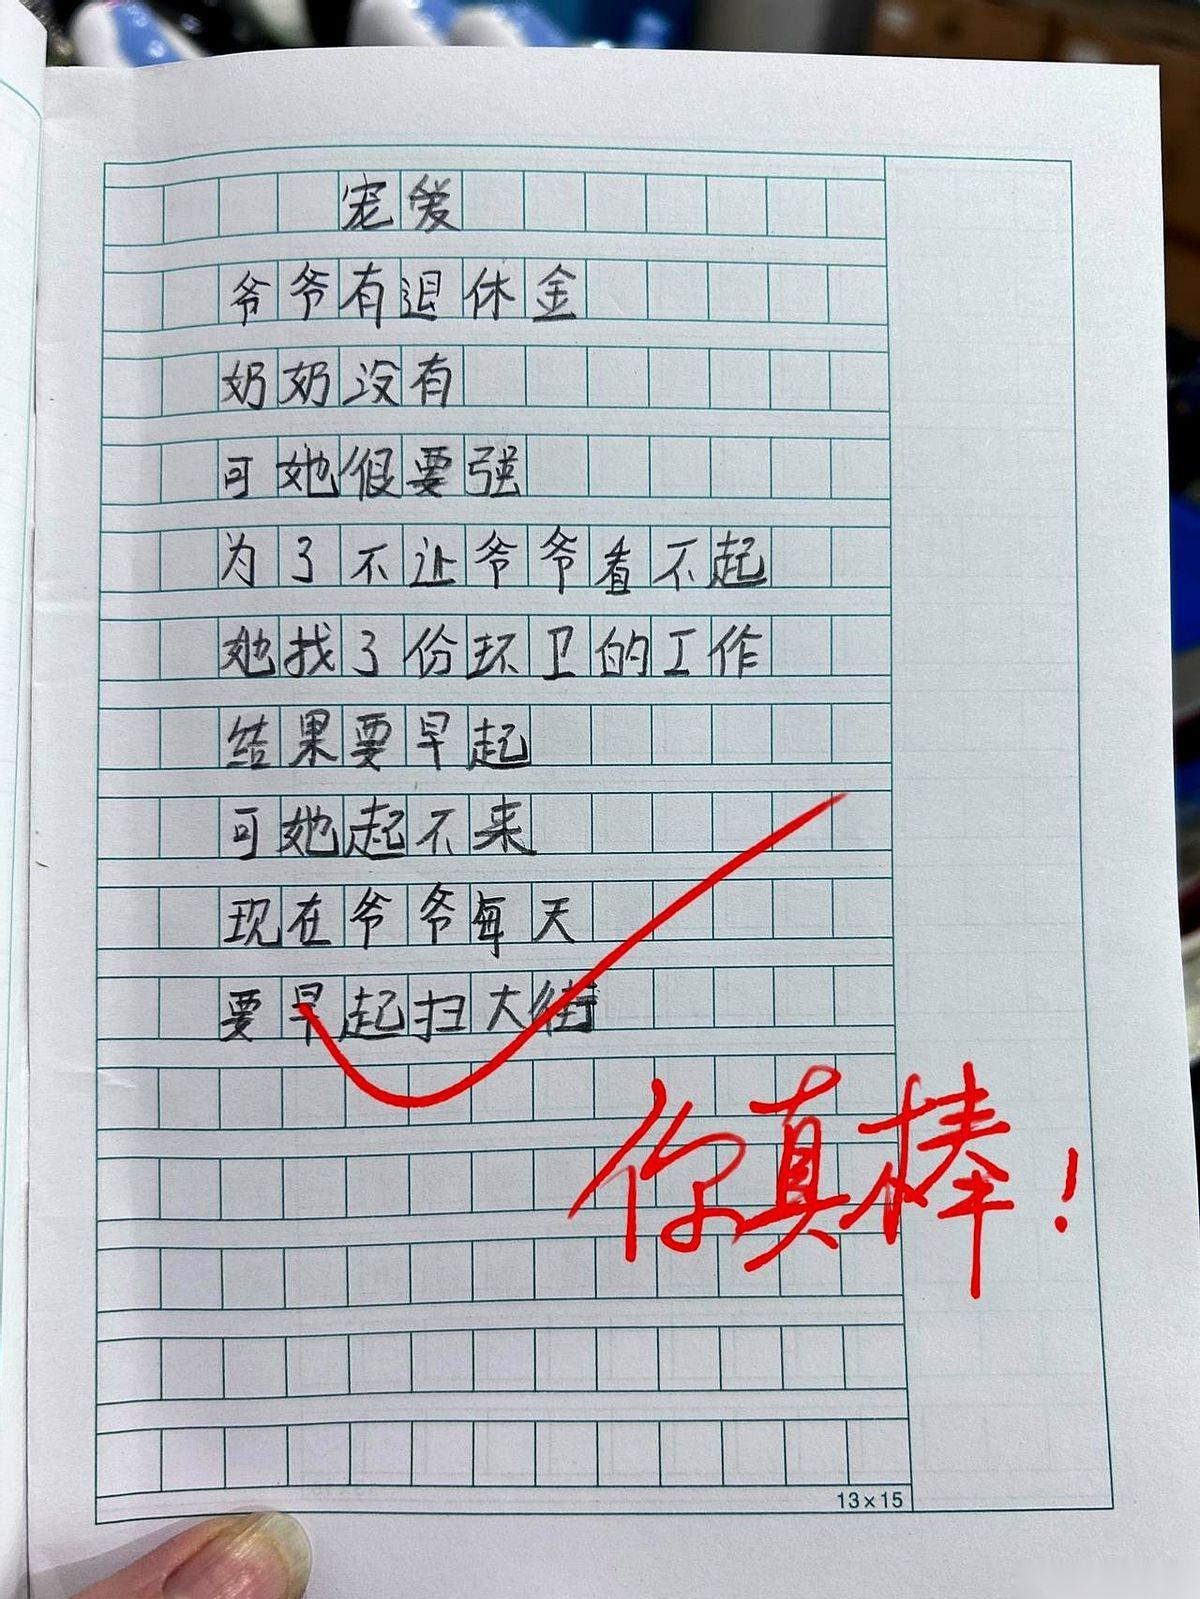 宠爱
爷爷有退休金
奶奶没有
可她很要强
为了不让爷爷看不起
她找了份环卫的工作
结果要早起
可她起不来
现在爷爷每天
要早起扫大街
你真棒！
13×15